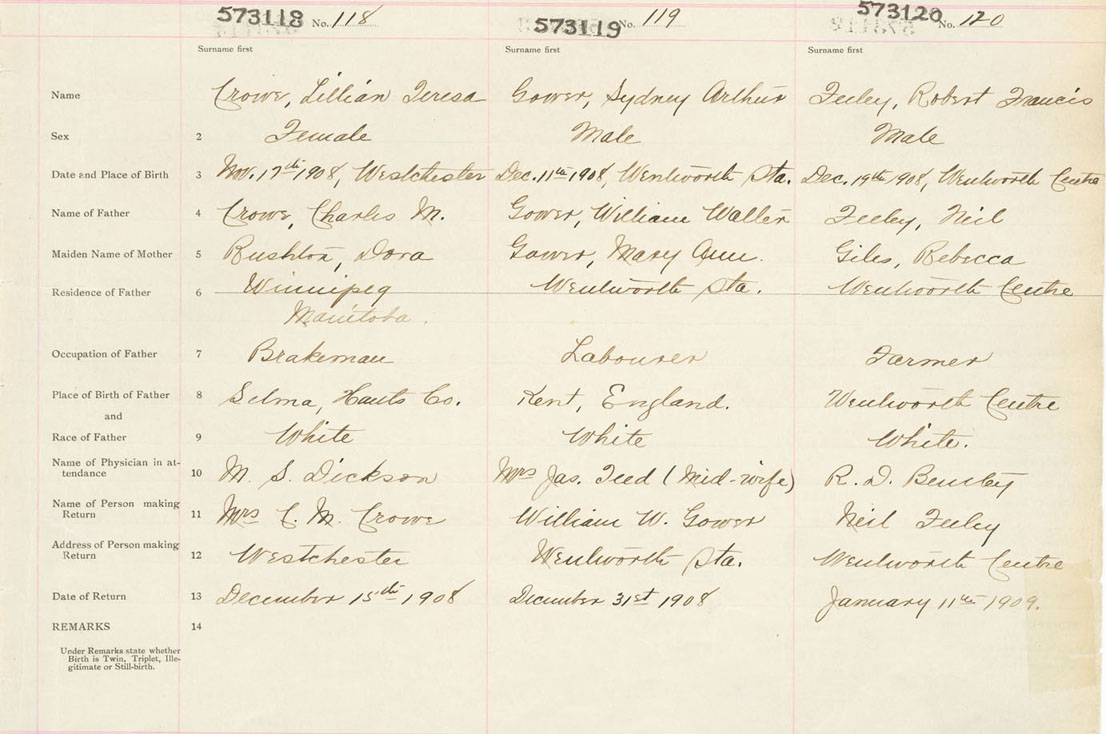 573118 No. 118 573119 No. 119 573120 No. 120
Surname first Surname first Surname first
Name Crowe, Lillian Teresa Gower, Sydney Arthur Feeley, Robert Francis
Sex 2 Female Male Male
Date and Place of Birth 3 Nov. 17th 1908, Westchester Dec. 11th 1908, Wentworth Sta. Dec. 19th 1908, Wentworth Centre
Name of Father 4 Crowe, Charles M. Gower, William Walter Feeley, Neil
Maiden Name of Mother 5 Rushton, Dora Gower, Mary Ann. Giles, Rebecca
Residence of Father 6 Winnipeg Wentworth Sta. Wentworth Centre
Manitoba.
Occupation of Father 7 Brakeman Labourer Farmer
Place of Birth of Father 8 Selma, Hants Co. Kent, England. Wentworth Centre
and
Race of Father 9 White White White.
Name of Physician in at-
tendance 10 M. S. Dickson Mrs Jas. Teed (Mid-wife) R. D.
Name of Person making
Return 11 Mrs C. M. Crowe William W. Gower Neil Feeley
Address of Person making
Return 12 Westchester Wentworth Sta. Wentworth Centre
Date of Return 13 December 15th 1908 December 31st 1908 January 11th 1909.
REMARKS 14
Under Remarks state whether
Birth is Twin, Triplet, Ille-
gitimate or Still-birth.